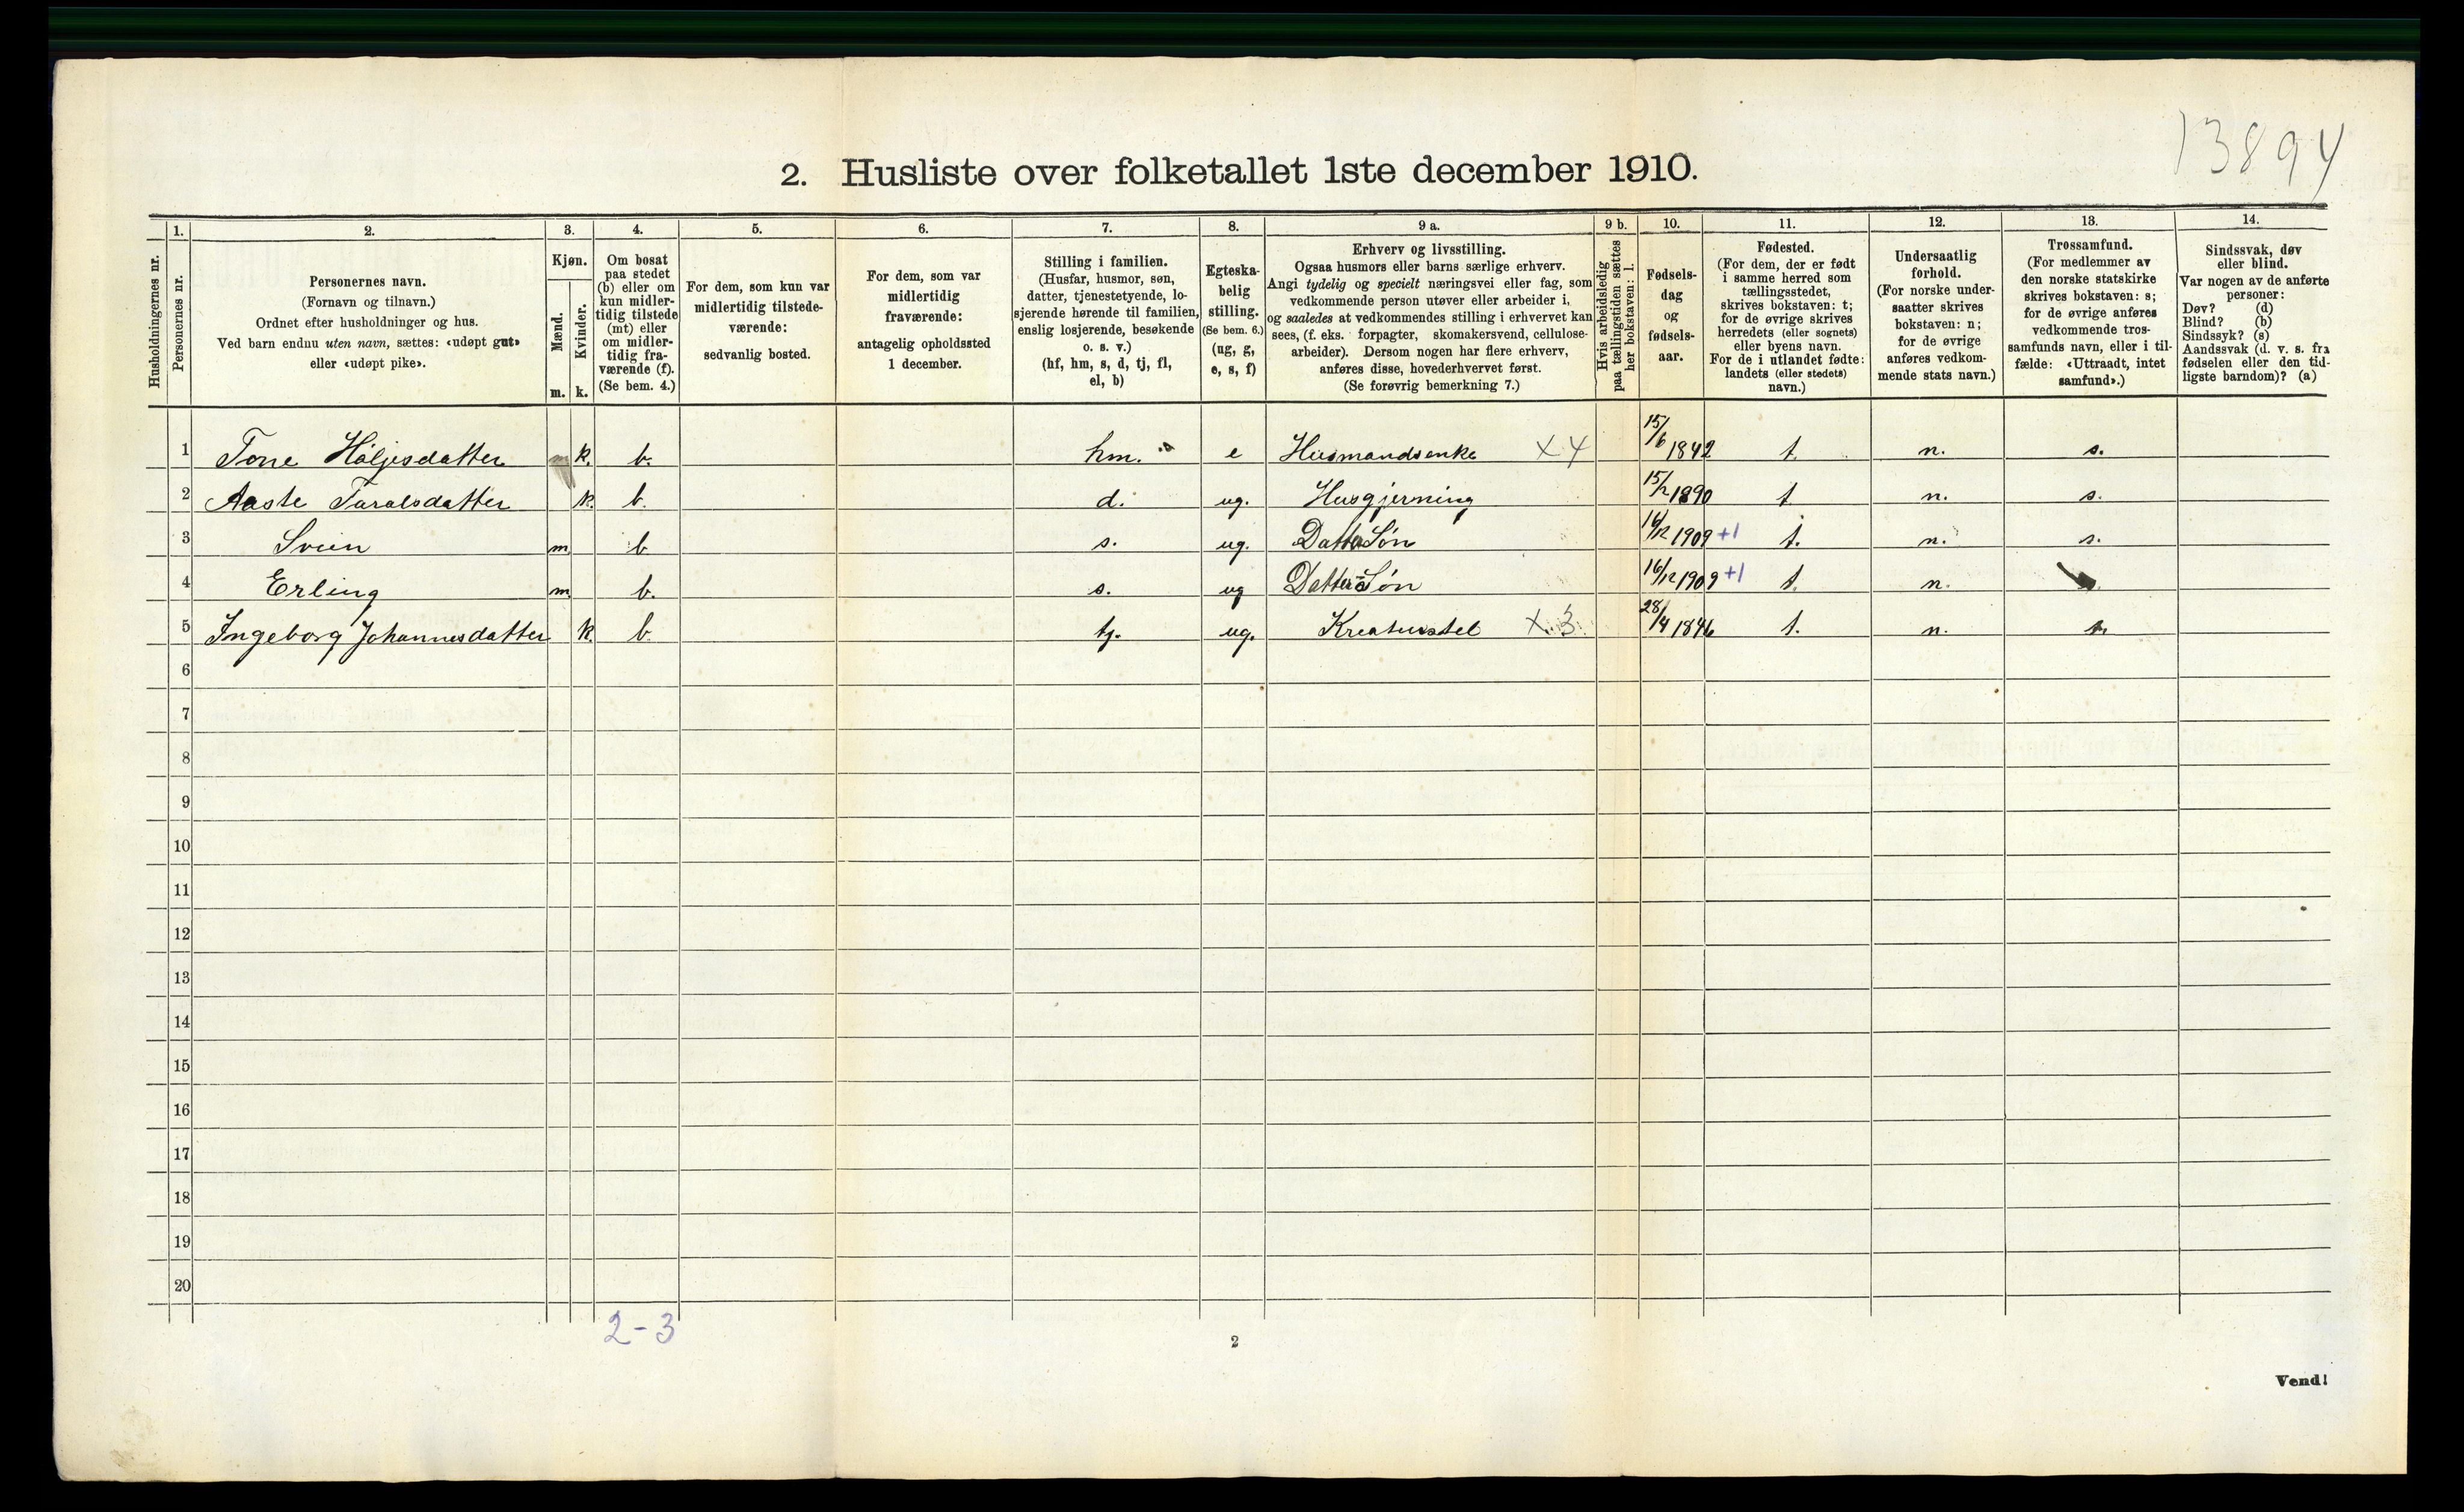 13894
2. Husliste over folketallet 1ste december 1910.
Husholdningernes nr.
1.
Personernes nr.
2.
Personernes navn.
(Fornavn og tilnavn.)
Ordnet efter husholdninger og hus.
Ved barn endnu uten navn, sættes: «udøpt gut»
eller «udøpt pike».
3.
Kjøn.
Mænd.
Kvinder.
m.
k.
4.
Om bosat
paa stedet
(b) eller om
kun midler-
tidig tilstede
(mt) eller
om midler-
tidig fra-
værende (f).
(Se bem. 4.)
5.
For dem, som kun var
midlertidig tilstede-
værende:
sedvanlig bosted.
6.
For dem, som var
midlertidig
fraværende:
antagelig opholdssted
1 december.
7.
Stilling i familien.
(Husfar, husmor, søn,
datter, tjenestetyende, lo-
sjerende hørende til familien,
enslig losjerende, besøkende
o. s. v.)
(hf, hm, s, d, tj, fl,
el, b)
8.
Egteska-
belig
stilling.
(Se bem. 6.)
(ug, g,
e, s, f)
9 a.
Erhverv og livsstilling.
Ogsaa husmors eller barns særlige erhverv.
Angi tydelig og specielt næringsvei eller fag, som
vedkommende person utøver eller arbeider i,
og saaledes at vedkommendes stilling i erhvervet kan
sees, (f. eks. forpagter, skomakersvend, cellulose-
arbeider). Dersom nogen har flere erhverv,
anføres disse, hovederhvervet først.
(Se forøvrig bemerkning 7.)
9 b.
Hvis arbeidsledig
paa tællingstiden sættes
her bokstaven: l.
10.
Fødsels-
dag
og
fødsels-
aar.
11.
Fødested.
(For dem, der er født
i samme herred som
tællingsstedet,
skrives bokstaven: t;
for de øvrige skrives
herredets (eller sognets)
eller byens navn.
For de i utlandet fødte:
landets (eller stedets)
navn.)
12.
Undersaatlig
forhold.
(For norske under-
saatter skrives
bokstaven: n;
for de øvrige
anføres vedkom-
mende stats navn.)
13.
Trossamfund.
(For medlemmer av
den norske statskirke
skrives bokstaven: s;
for de øvrige anføres
vedkommende tros-
samfunds navn, eller i til-
fælde: «Uttraadt, intet
samfund».)
14.
Sindssvak, døv
eller blind.
Var nogen av de anførte
personer:
Døv? (d)
Blind? (b)
Sindssyk? (s)
Aandssvak (d. v. s. fra
fødselen eller den tid-
ligste barndom)? (a)
1 Tone Haljesdatter k. b. hm. e Husmandsenke X 4 15/6 1842 t. n. s.
2 Aaste Taralsdatter k. b. d. ug. Husgjerning 15/2 1890 t n. s.
3 Svein m. b. s. ug. Datter Søn 16/12 1909 +1 t. n. s.
4 Erling m. b. s. ug Datters Søn 16/12 1909 +1 t. n.
5 Ingeborg Johannesdatter k. b. tj. ug. Kreaturstel X 3. 28/4 1846 t. n. s.
6
7
8
9
10
11
12
13
14
15
16
17
18
19
20
2-3
2
Vend!